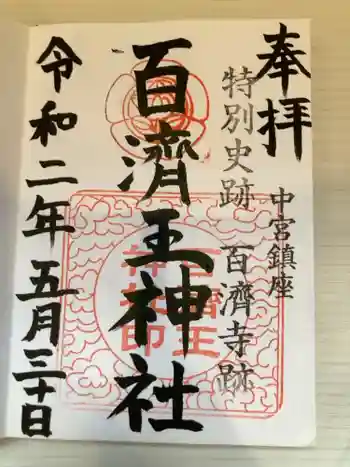 奉拝
中宮鎮座
特別史跡 百濟寺跡
百濟王神社
百濟王
神社印
令和二年五月三十日